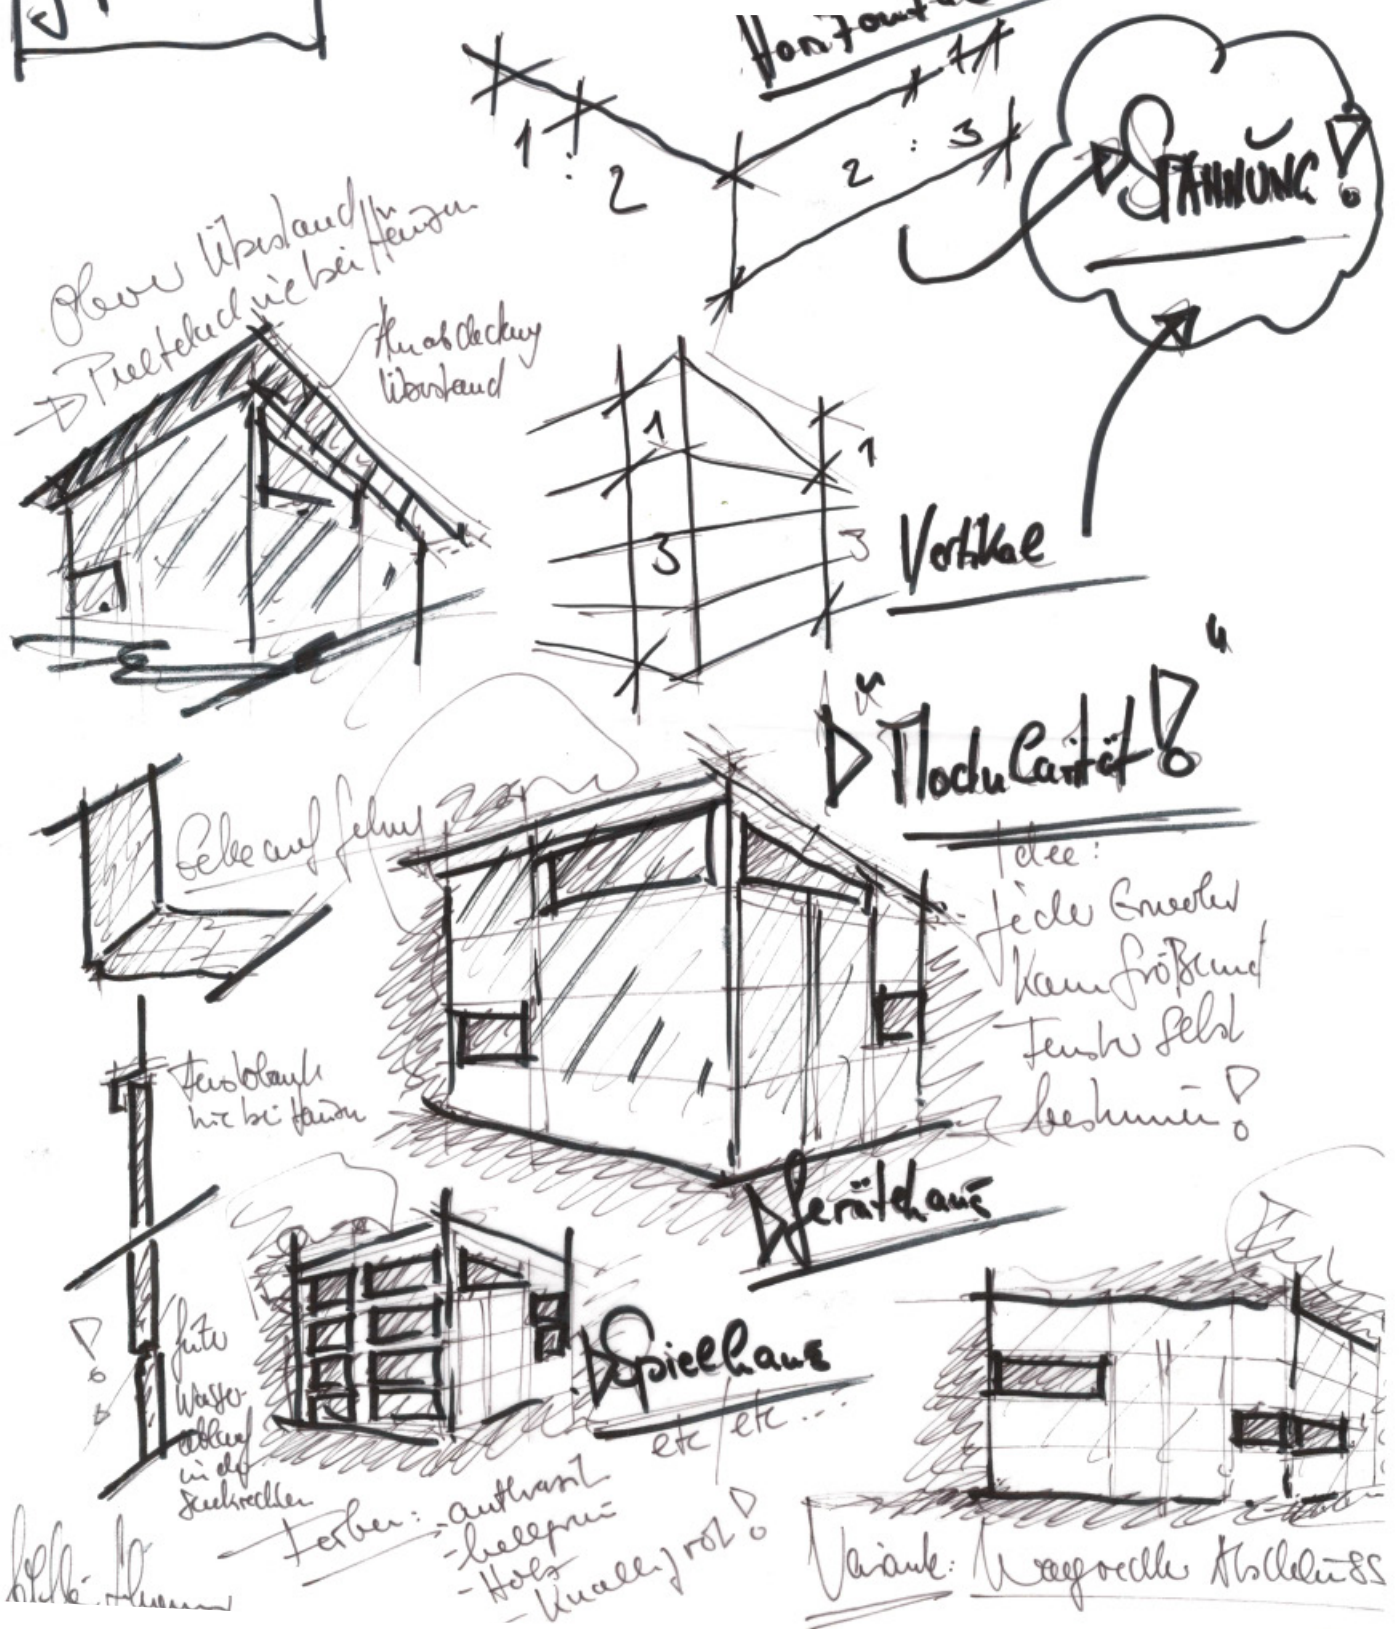 Horizontal
1 : 2
2 : 3
1
SPANNUNG!
oberer Überstand
Pultdach wie bei Häusern
Überstand
1
1
3
3
Vertikal
"Modularität!"
Idee:
jeder Erwerber
kann Größe und
Fenster selbst
bestimmen!
Ecke auf Gehrung
Fensterbank
wie bei Häusern
Gerätehaus
guter
Wasser-
ablauf
in der
Senkrechten
Spielhaus
etc/etc...
Farben: - anthrazit
- hellgrün
- Holz
- Knalligrot!
Variante: Waagrechter Abschluss